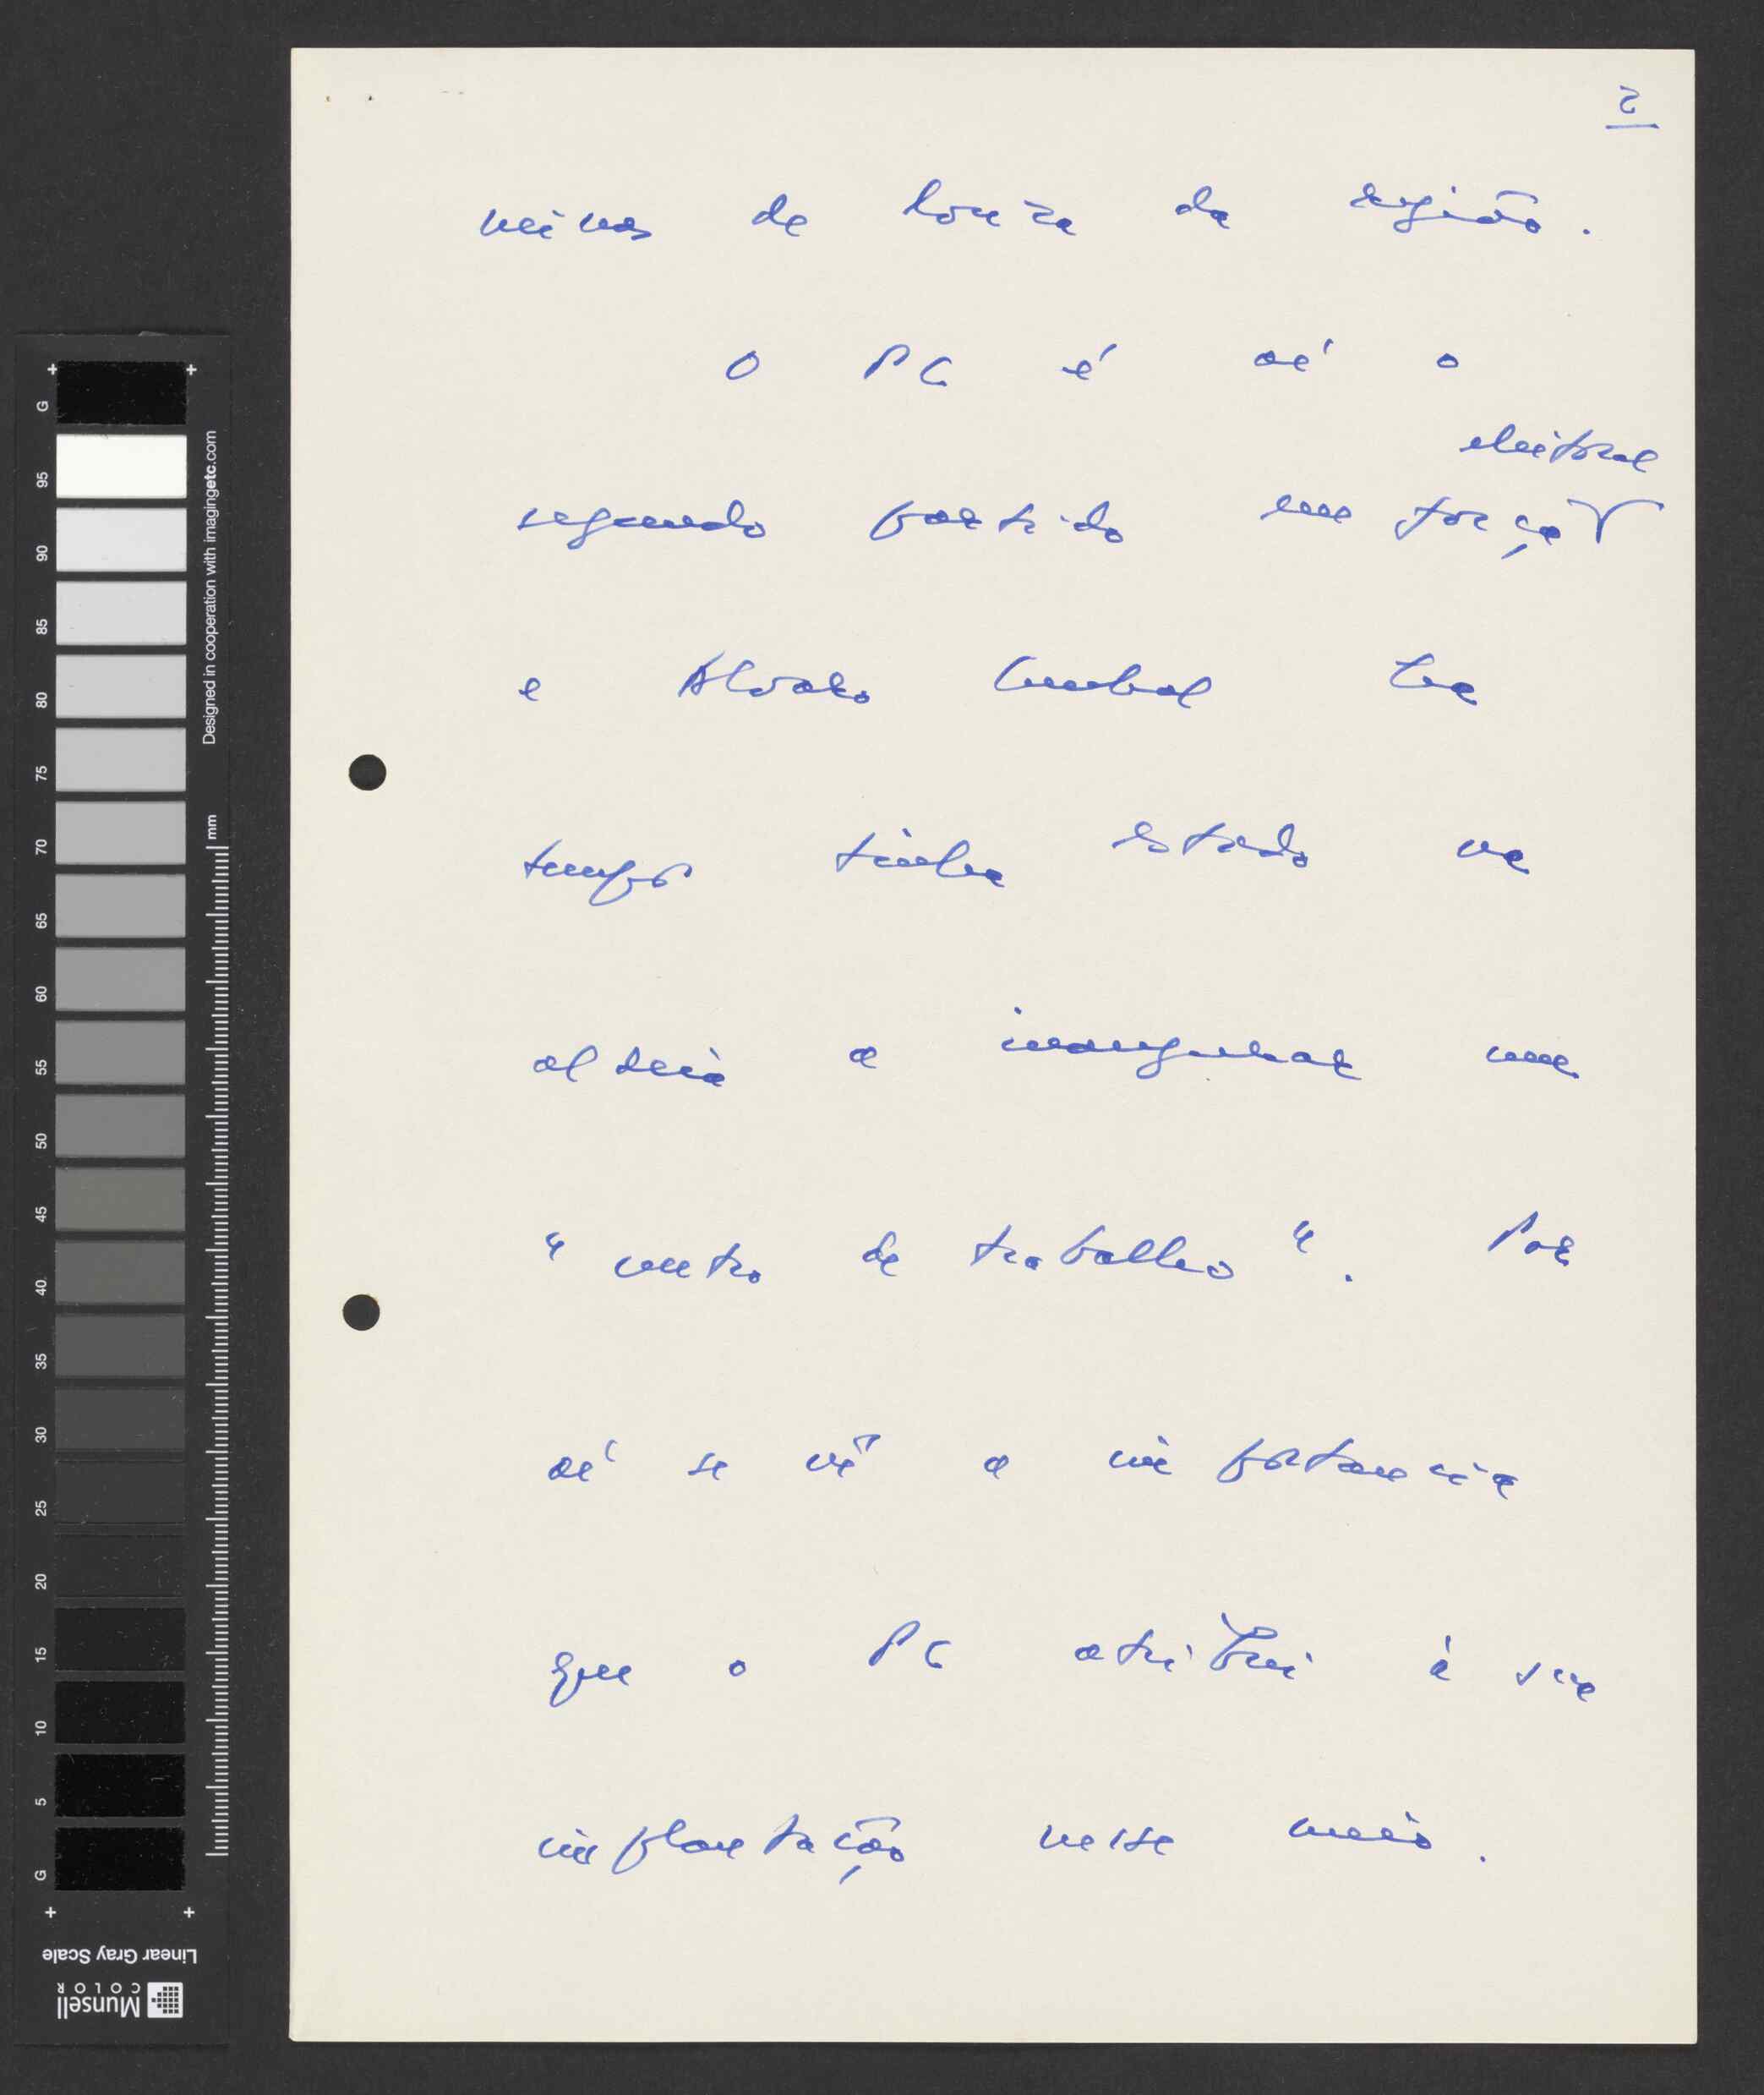 2
minas de louza da região.
O PC é aí o
eleitoral
segundo partido em força
e Alvaro Cunhal há
tempos tinha estado na
aldeia a inaugurar um
"centro de trabalho". Por
aí se vê a importancia
que o PC atribui à sua
implantação nesse meio.
G 95 90 85 80 75 70 65 60 55 50 45 40 35 30 25 20 15 10 5 G
Designed in cooperation with imagingetc.com
mm
Linear Gray Scale
Munsell
COLOR